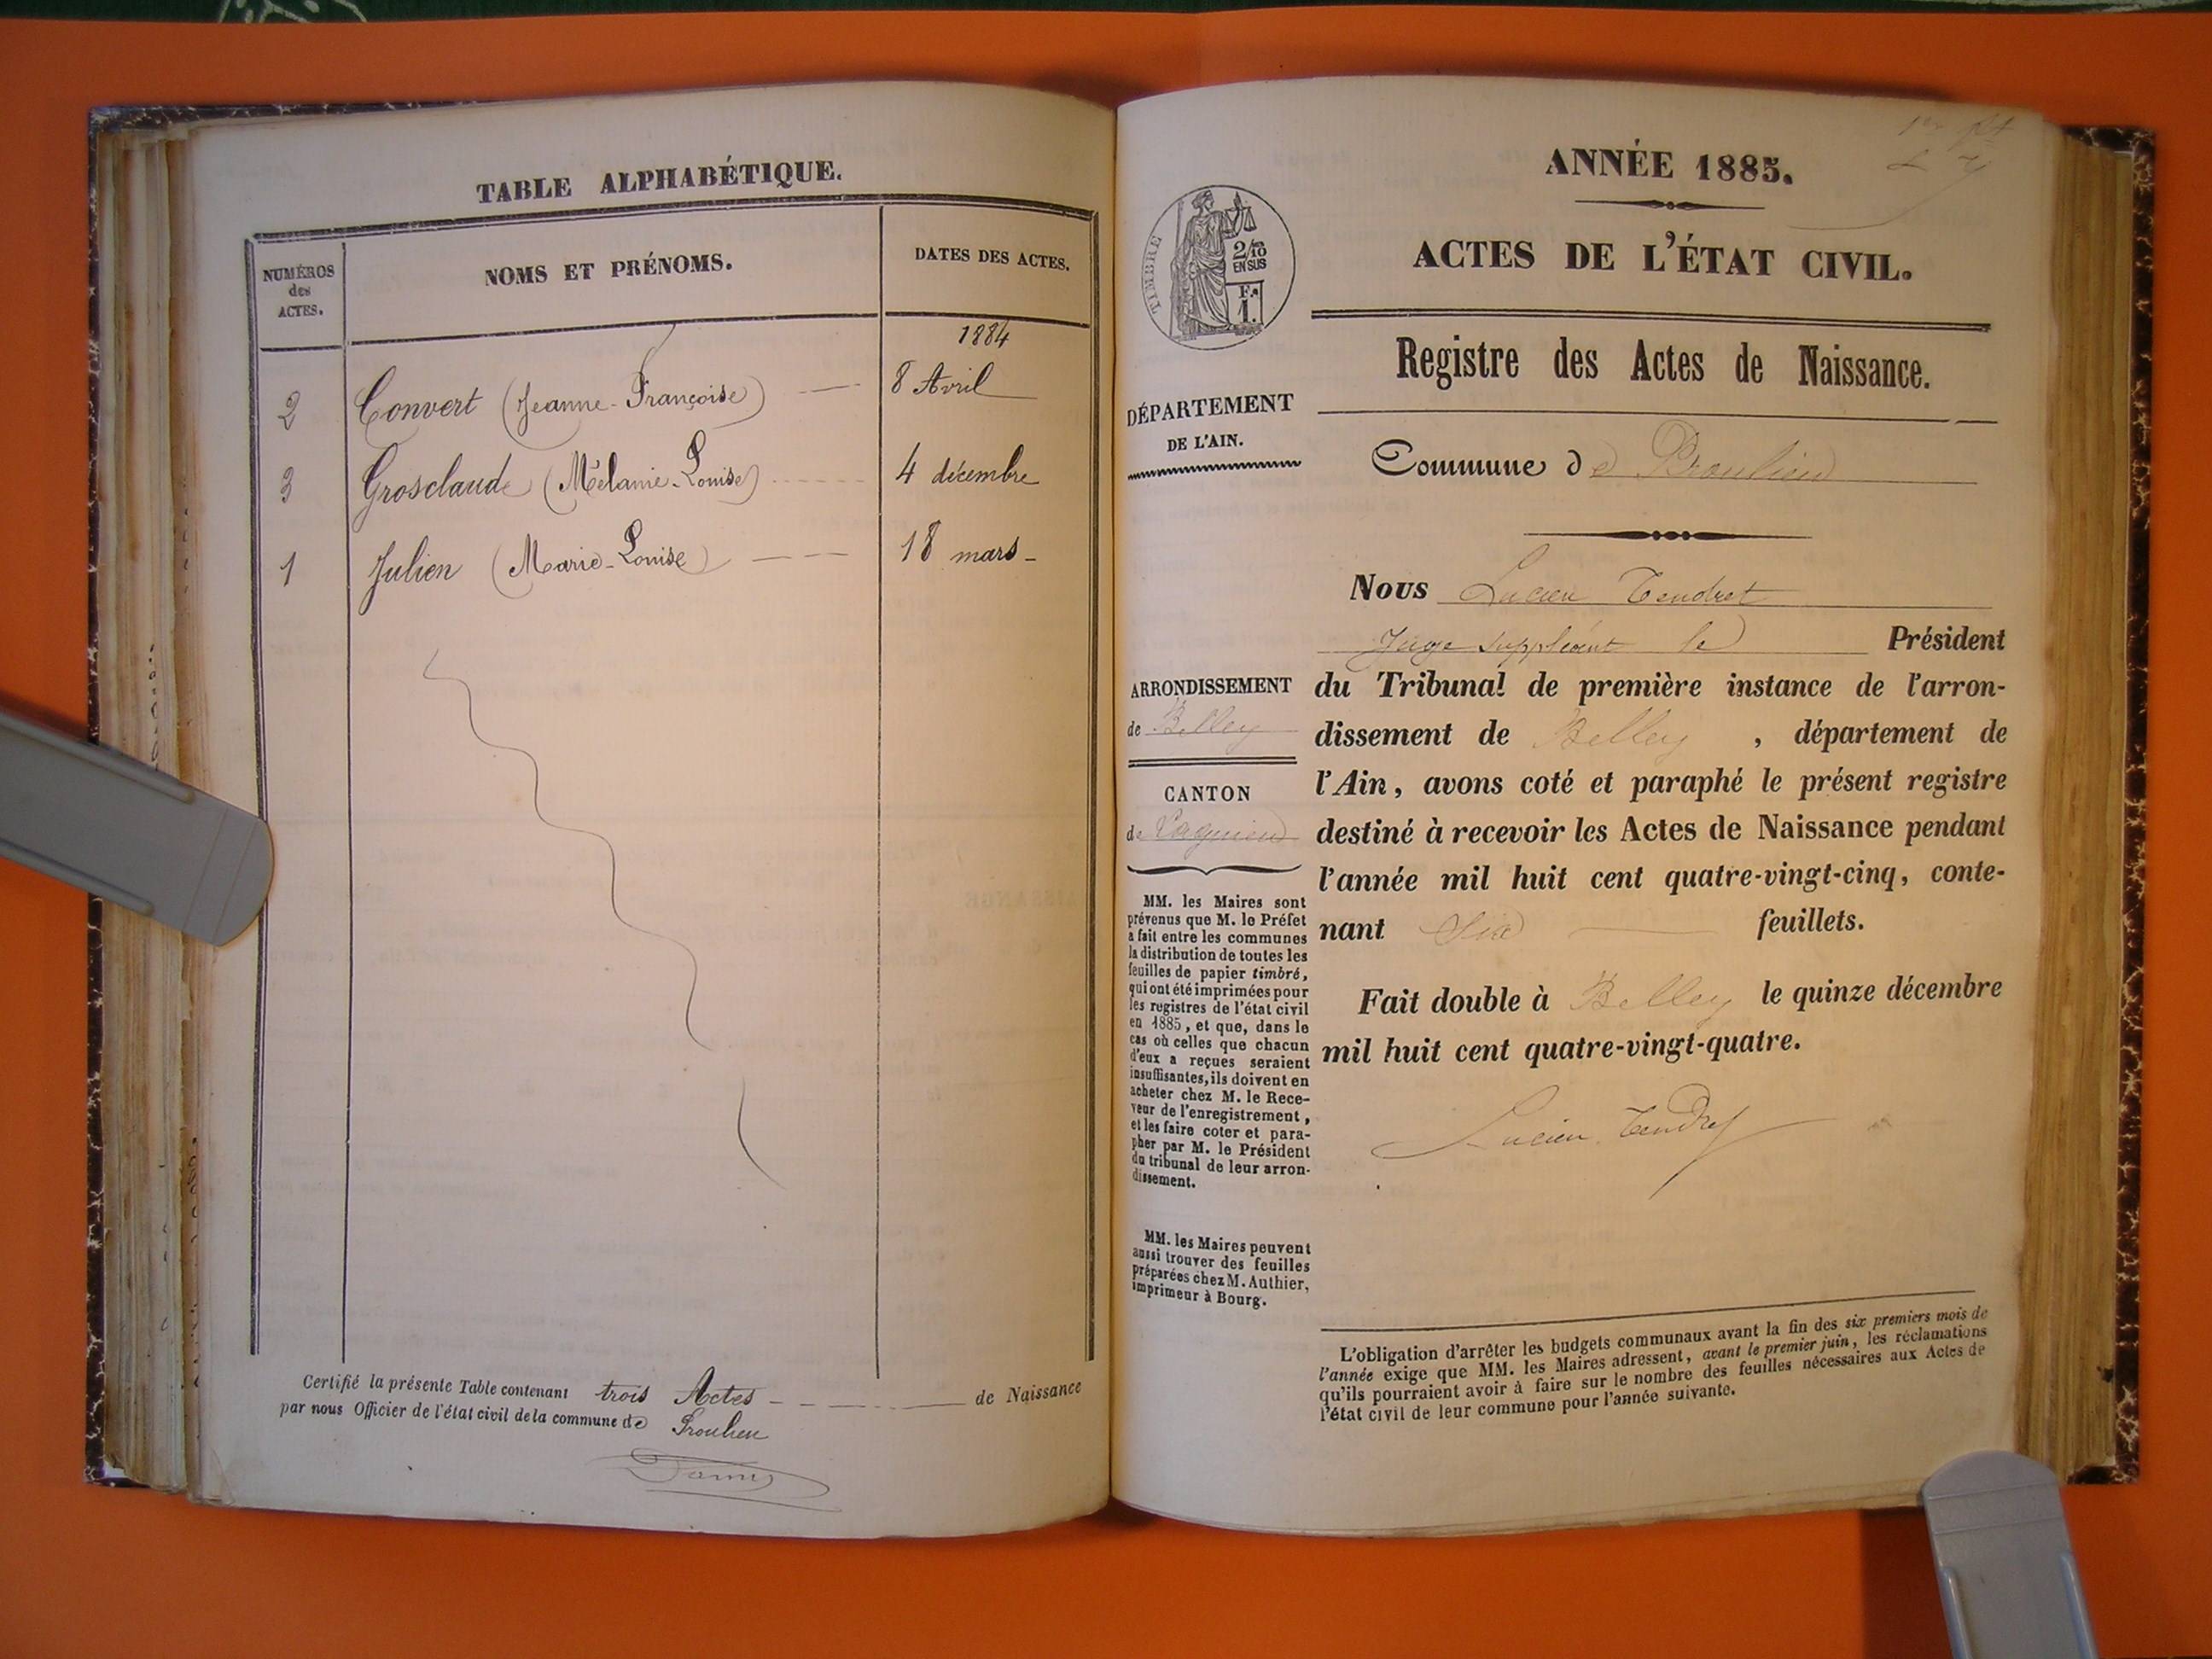 TABLE ALPHABÉTIQUE.
NUMÉROS
des
ACTES.
NOMS ET PRÉNOMS.
DATES DES ACTES.
1884
2 Convert (Jeanne-Françoise) 8 Avril
3 Grosclaude (Mélanie-Louise) 4 décembre
1 Julien (Marie-Louise) 18 mars
Certifié la présente Table contenant trois Actes de Naissance
par nous Officier de l'état civil de la commune de Proulieu
ANNÉE 1885.
ACTES DE L'ÉTAT CIVIL.
TIMBRE
2/10
EN SUS
Fc
1.
Registre des Actes de Naissance.
DÉPARTEMENT
DE L'AIN.
Commune de Proulieu
Nous Lucien Tendret
Juge suppléant le Président
du Tribunal de première instance de l'arron-
dissement de Belley, département de
l'Ain, avons coté et paraphé le présent registre
destiné à recevoir les Actes de Naissance pendant
l'année mil huit cent quatre-vingt-cinq, conte-
nant Six feuillets.
Fait double à Belley le quinze décembre
mil huit cent quatre-vingt-quatre.
Lucien Tendret
ARRONDISSEMENT
de Belley
CANTON
de Lagnieu
MM. les Maires sont
prévenus que M. le Préfet
a fait entre les communes
la distribution de toutes les
feuilles de papier timbré,
qui ont été imprimées pour
les registres de l'état civil
en 1885, et que, dans le
cas où celles que chacun
d'eux a reçues seraient
insuffisantes, ils doivent en
acheter chez M. le Rece-
veur de l'enregistrement,
et les faire coter et para-
pher par M. le Président
du tribunal de leur arron-
dissement.
MM. les Maires peuvent
aussi trouver des feuilles
préparées chez M. Authier,
imprimeur à Bourg.
L'obligation d'arrêter les budgets communaux avant la fin des six premiers mois de
l'année exige que MM. les Maires adressent, avant le premier juin, les réclamations
qu'ils pourraient avoir à faire sur le nombre des feuilles nécessaires aux Actes de
l'état civil de leur commune pour l'année suivante.